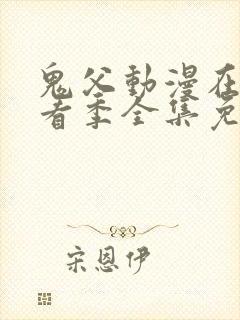 鬼父動漫在
看季全集免
宋恩伊